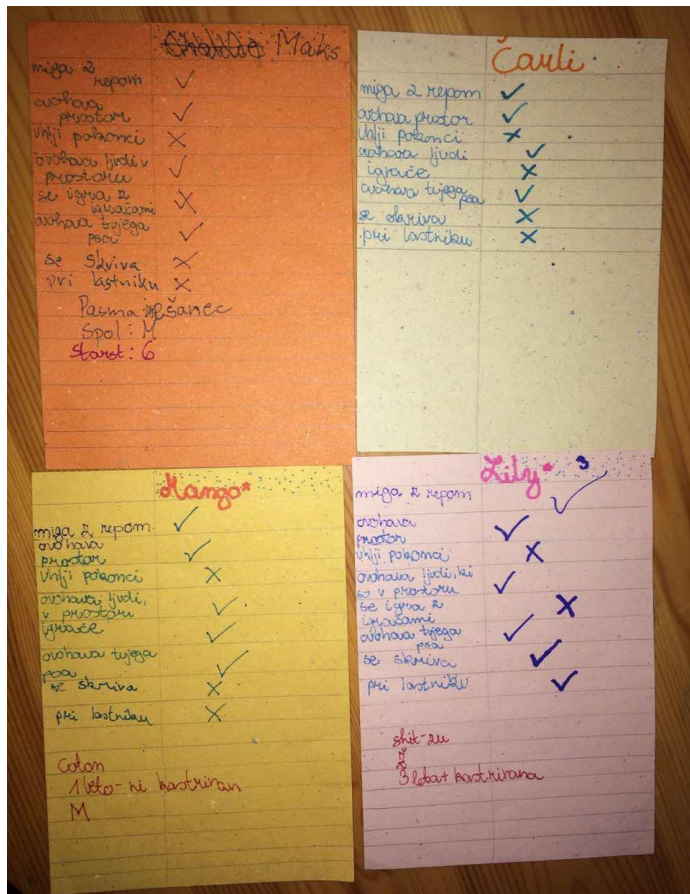 Maks
miga z ✓
repom
ovohava ✓
prostor
uhlji pokonci ✗
ovohava ljudi v ✓
prostoru
se igra z ✗
igračami
ovohava tvjega ✓
psa
se skriva ✗
pri lastniku ✗
Pasma: mešanec
Spol: M
Starst: 6
Čarli
miga z repom ✓
ovohava prostor ✓
uhlji pokonci ✗
ovohava ljudi ✓
igrače ✗
ovohava tvjega ✓
psa
se skriva ✗
pri lastniku ✗
Mango*
miga z repom ✓
ovohava ✓
prostor
uhlji pokonci ✗
ovohava ljudi, ✓
v prostoru
igrače ✓
ovohava tvjega ✓
psa
se skriva ✗
pri lastniku ✗
Coton
1 leto - ni kastriran
M
Lily* 3
miga z repom ✓
ovohava ✓
prostor
uhlji pokonci ✗
ovohava ljudi, ki ✓
so v prostoru
se igra z ✗
igračami
ovohava tvjega ✓
psa
se skriva ✓
pri lastniku ✓
shit-zu
Ž
3 leta + kastrirana